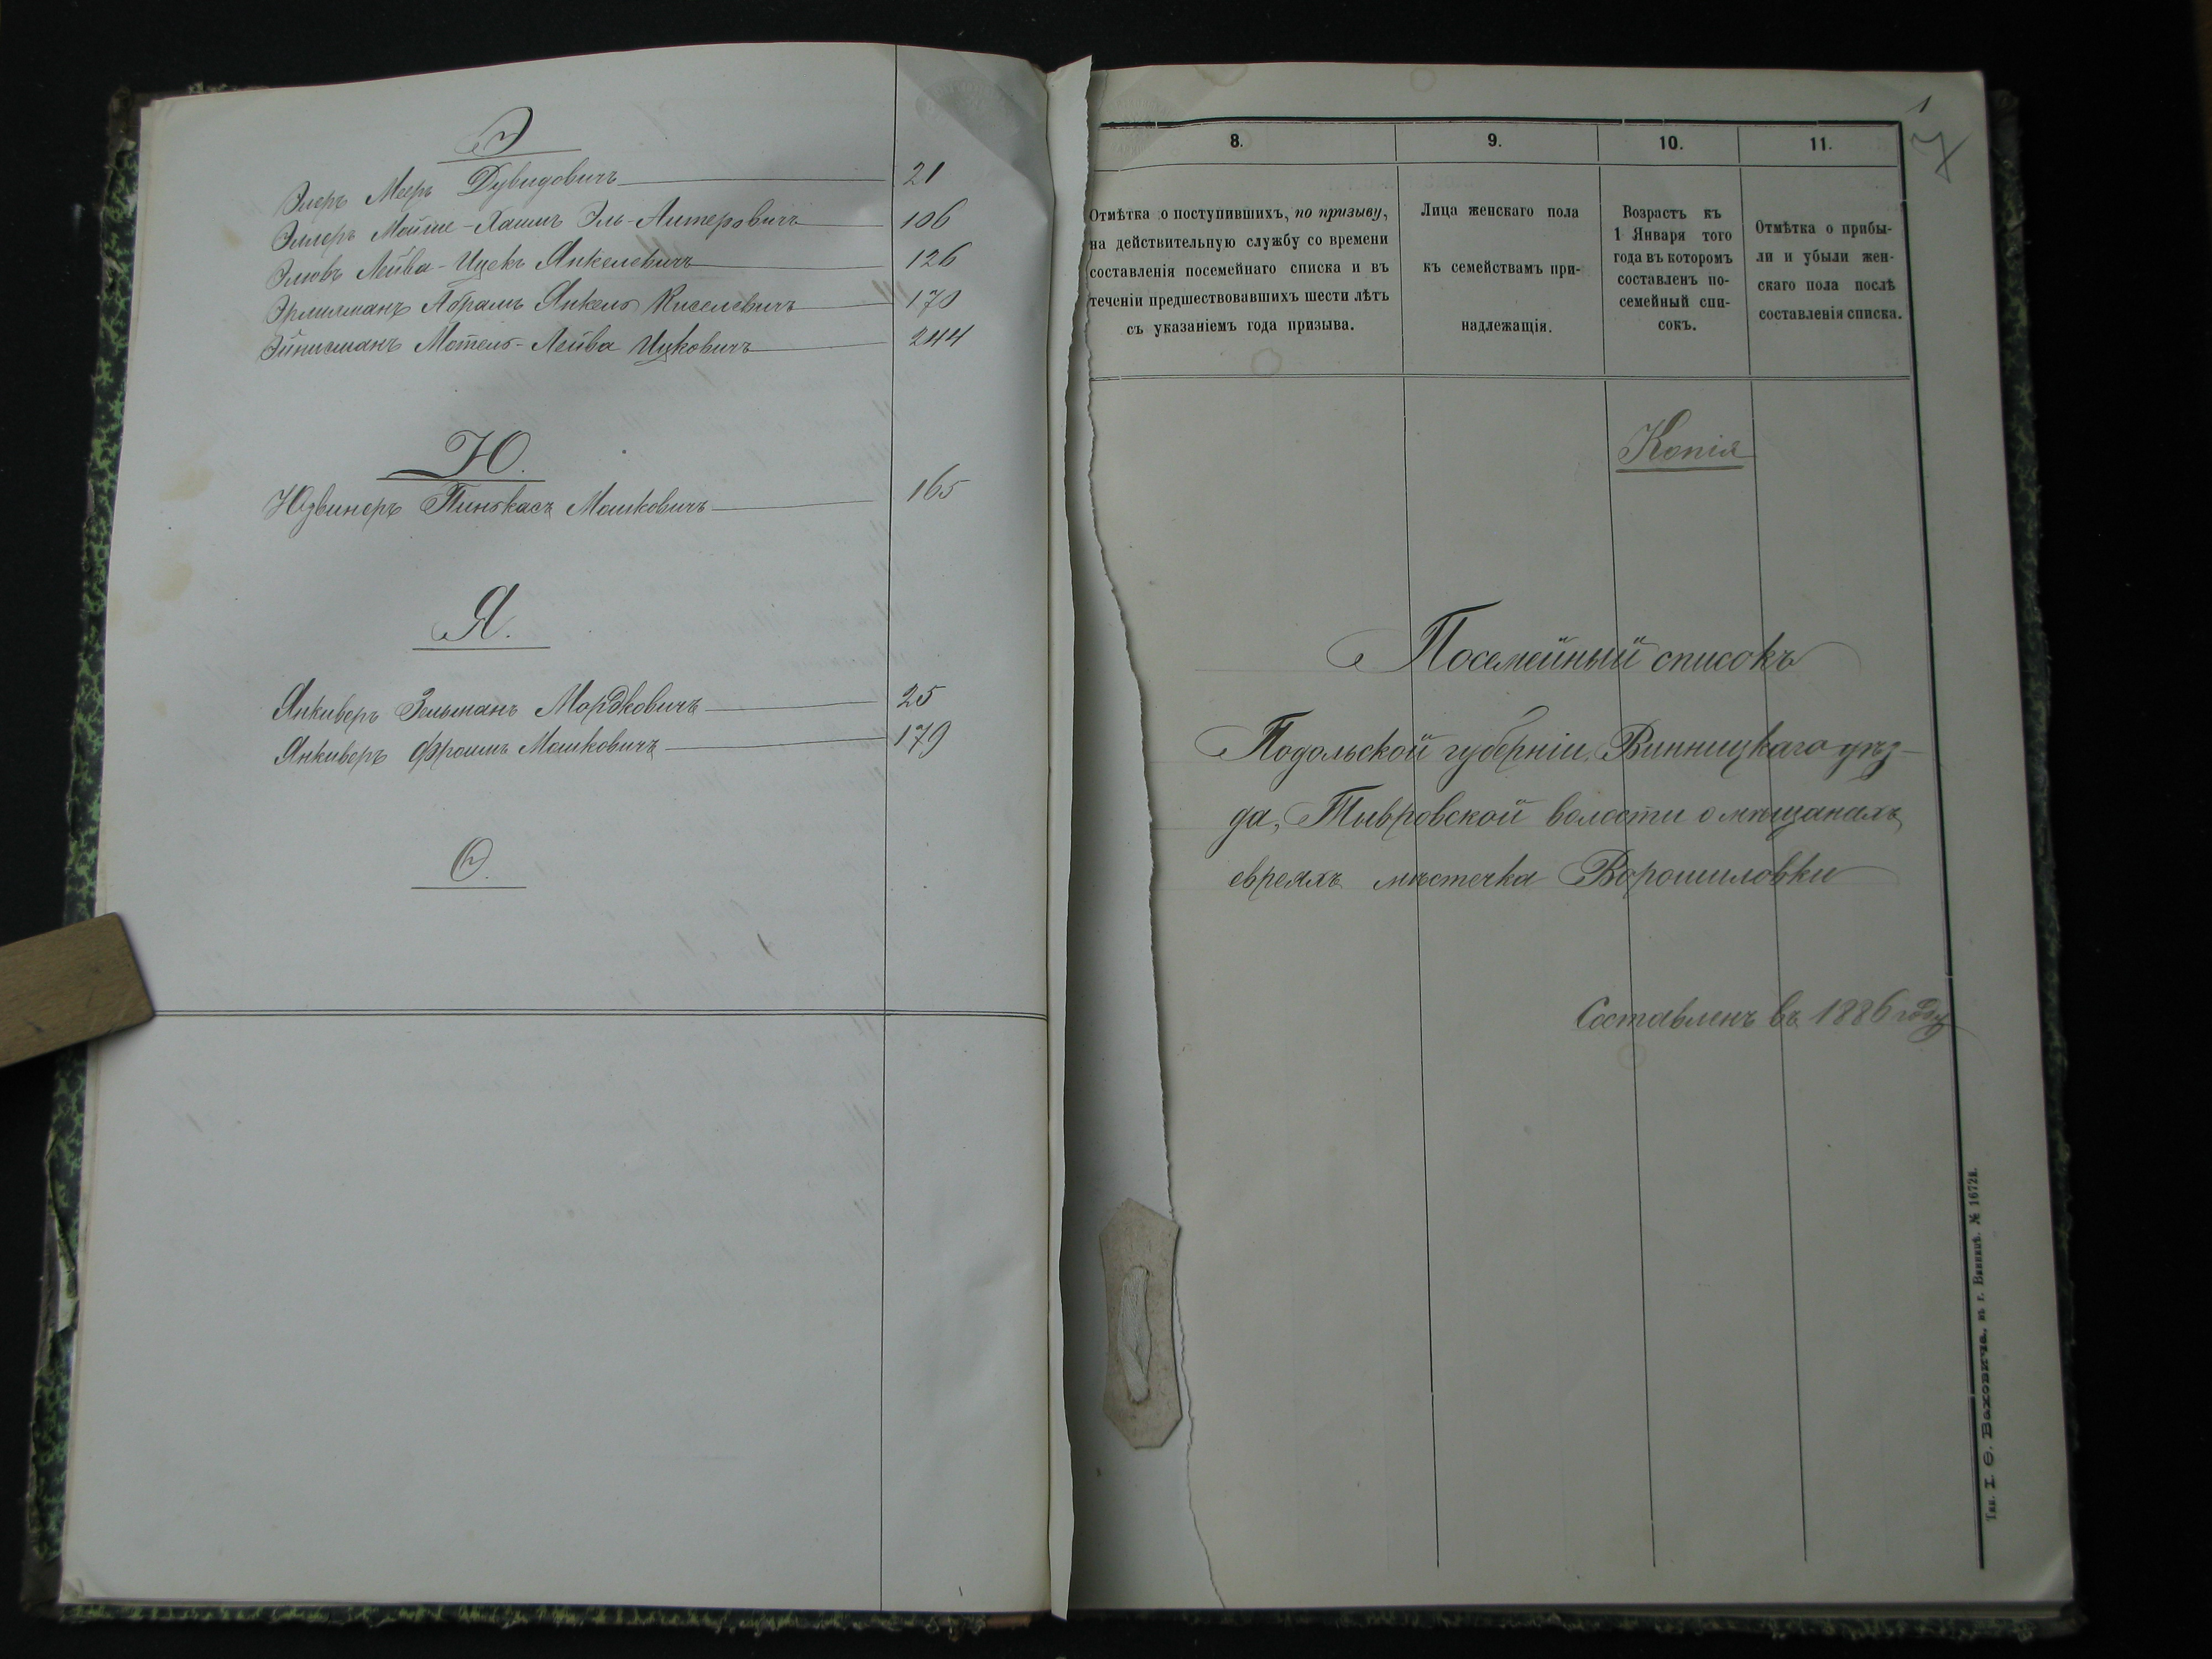 Э
Элеръ Мееръ Дувидовичъ 21
Эллеръ Мойше-Хаимъ Эль-Алтеровичъ 106
Лейба-Ицекъ Янкелевичъ 126
Эрлихманъ Абрамъ Янкель Киселевичъ 170
Мотель-Лейба Ицковичъ 244
Ю.
Юдвинеръ Пинькасъ Мошковичъ 165
Я.
Янкиверъ Зельманъ Мордковичъ 25
Янкиверъ Фроимъ Мошковичъ 179
Ѳ.
1
7
8. 9. 10. 11.
Отмѣтка о поступившихъ, по призыву,
на действительную службу со времени
составленія посемейнаго списка и въ
теченіи предшествовавшихъ шести лѣтъ
съ указаніемъ года призыва.
Лица женскаго пола
къ семействамъ при-
надлежащія.
Возрастъ къ
1 Января того
года въ которомъ
составленъ по-
семейный спи-
сокъ.
Отмѣтка о прибы-
ли и убыли жен-
скаго пола послѣ
составленія списка.
Копія
Посемейный списокъ
Подольской губерніи, Винницкаго уѣз-
да, Тывровской волости о мѣщанахъ
евреяхъ мѣстечка Ворошиловки
Составленъ въ 1886 году
Тип. І. Ѳ.Ваховича, въ г. Винниц. № 1672в.